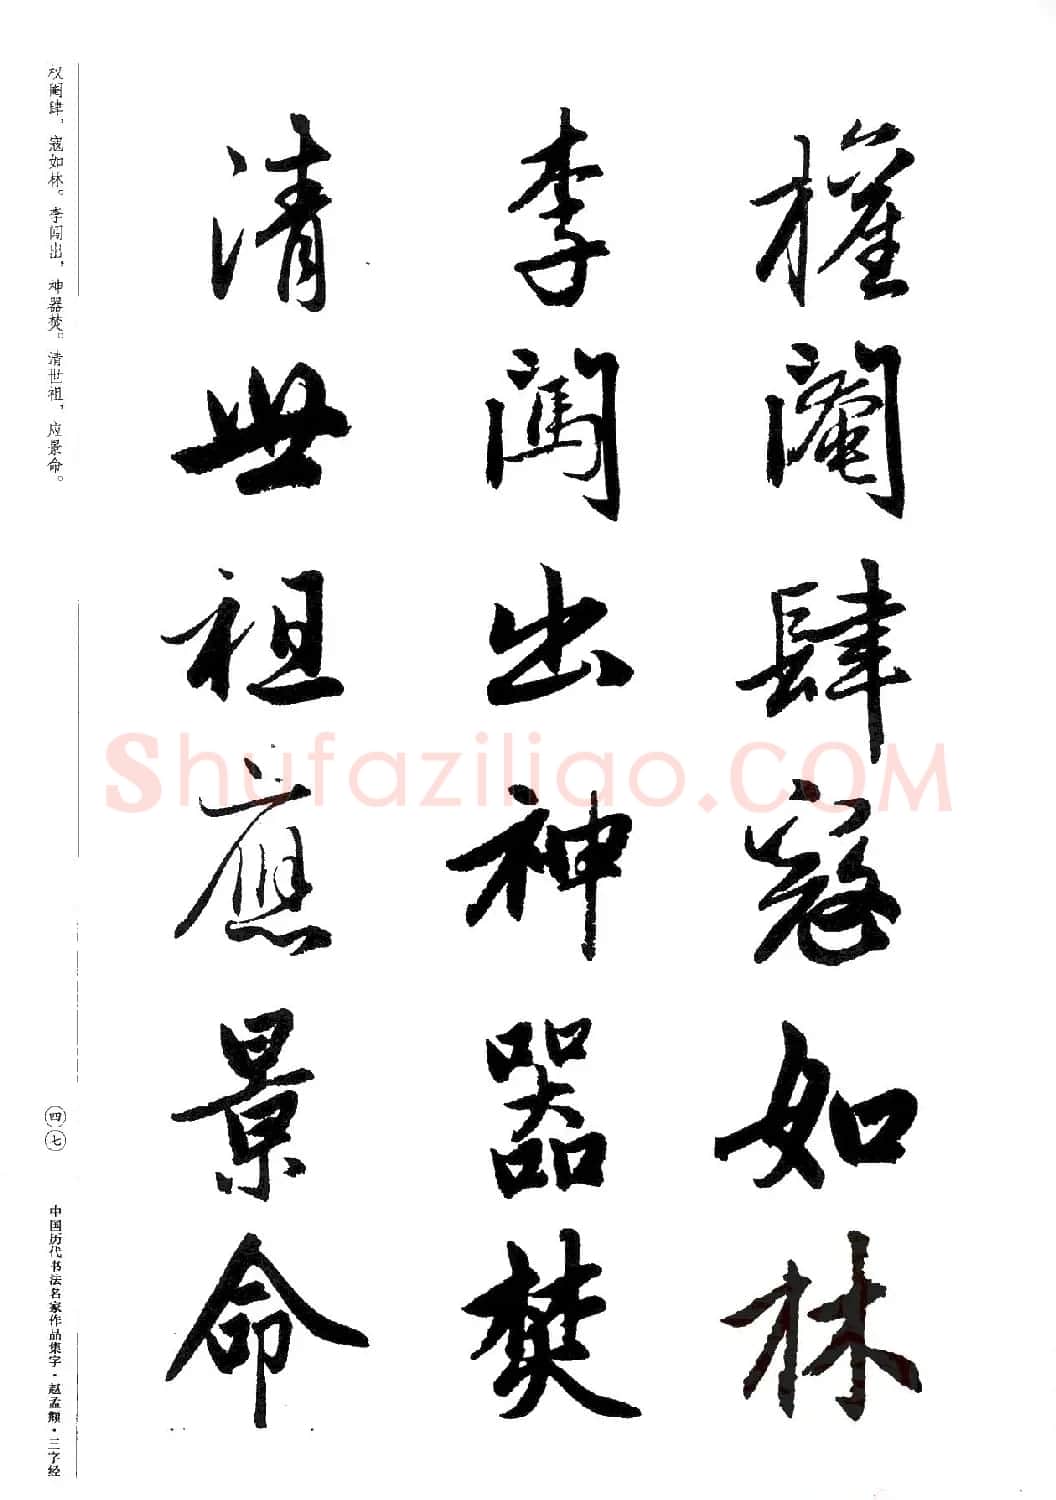 權閹肆寇如林
李闖出神器焚
清世祖應景命
权阉肆，寇如林。李闯出，神器焚。清世祖，应景命。
四七
中国历代书法名家作品集字·赵孟頫·三字经
Shufaziliao.COM